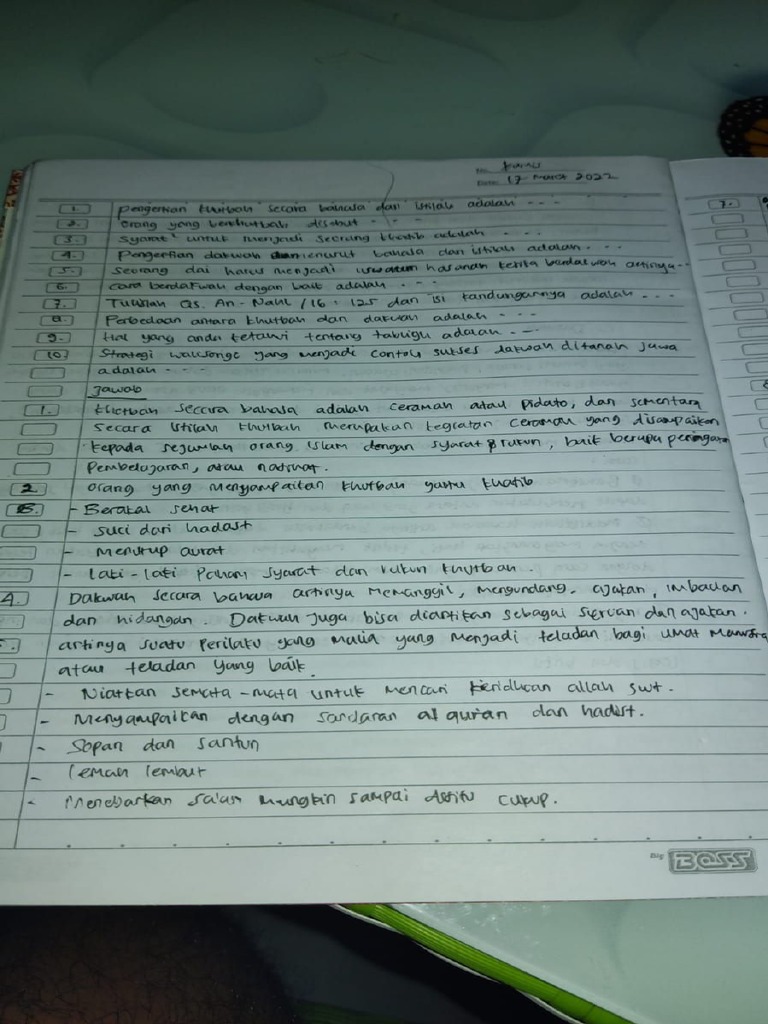 No: Kamis
Date: 17 Maret 2022
1. Pengertian khutbah secara bahasa dan istilah adalah ---
2. Orang yang berkhutbah disebut ---
3. Syarat² untuk menjadi seorang khatib adalah ...
4. Pengertian dakwah menurut bahasa dan istilah adalah. . .
5. Seorang dai harus menjadi uswatun hasanah ketika berdakwah artinya --
6. Cara berdakwah dengan baik adalah . . .
7. Tulislah QS. An-Nahl /16: 125 dan isi kandungannya adalah ---
8. Perbedaan antara khutbah dan dakwah adalah ---
9. Hal yang anda ketahui tentang tabligu adalah ---
10) Strategi walisongo yang menjadi contoh sukses dakwah ditanah jawa
adalah ---
Jawab
1. khutbah secara bahasa adalah ceramah atau Pidato, dan sementara
secara istilah khutbah merupakan kegiatan ceramah yang disampaikan
kepada sejumlah orang islam dengan syarat & rukun, baik berupa peringatan
Pembelajaran, atau nasihat.
2. orang yang menyampaikan khutbah yaitu khatib
3. - Berakal sehat
- Suci dari hadast
- Menutup aurat
- Laki-laki Paham syarat dan rukun khutbah.
4. Dakwah secara bahasa artinya Memanggil, Mengundang, ajakan, imbauan
dan hidangan. Dakwah Juga bisa diartikan sebagai seruan dan ajakan.
5. artinya suatu perilaku yang mulia yang menjadi teladan bagi umat Manusia
atau teladan yang baik.
- Niatkan semata-mata untuk mencari keridhoan allah swt.
- Menyampaikan dengan sandaran al quran dan hadist.
- Sopan dan santun
- lemah lembut
- Menebarkan salam mungkin sampai disitu cukup.
7.
Big BOSS